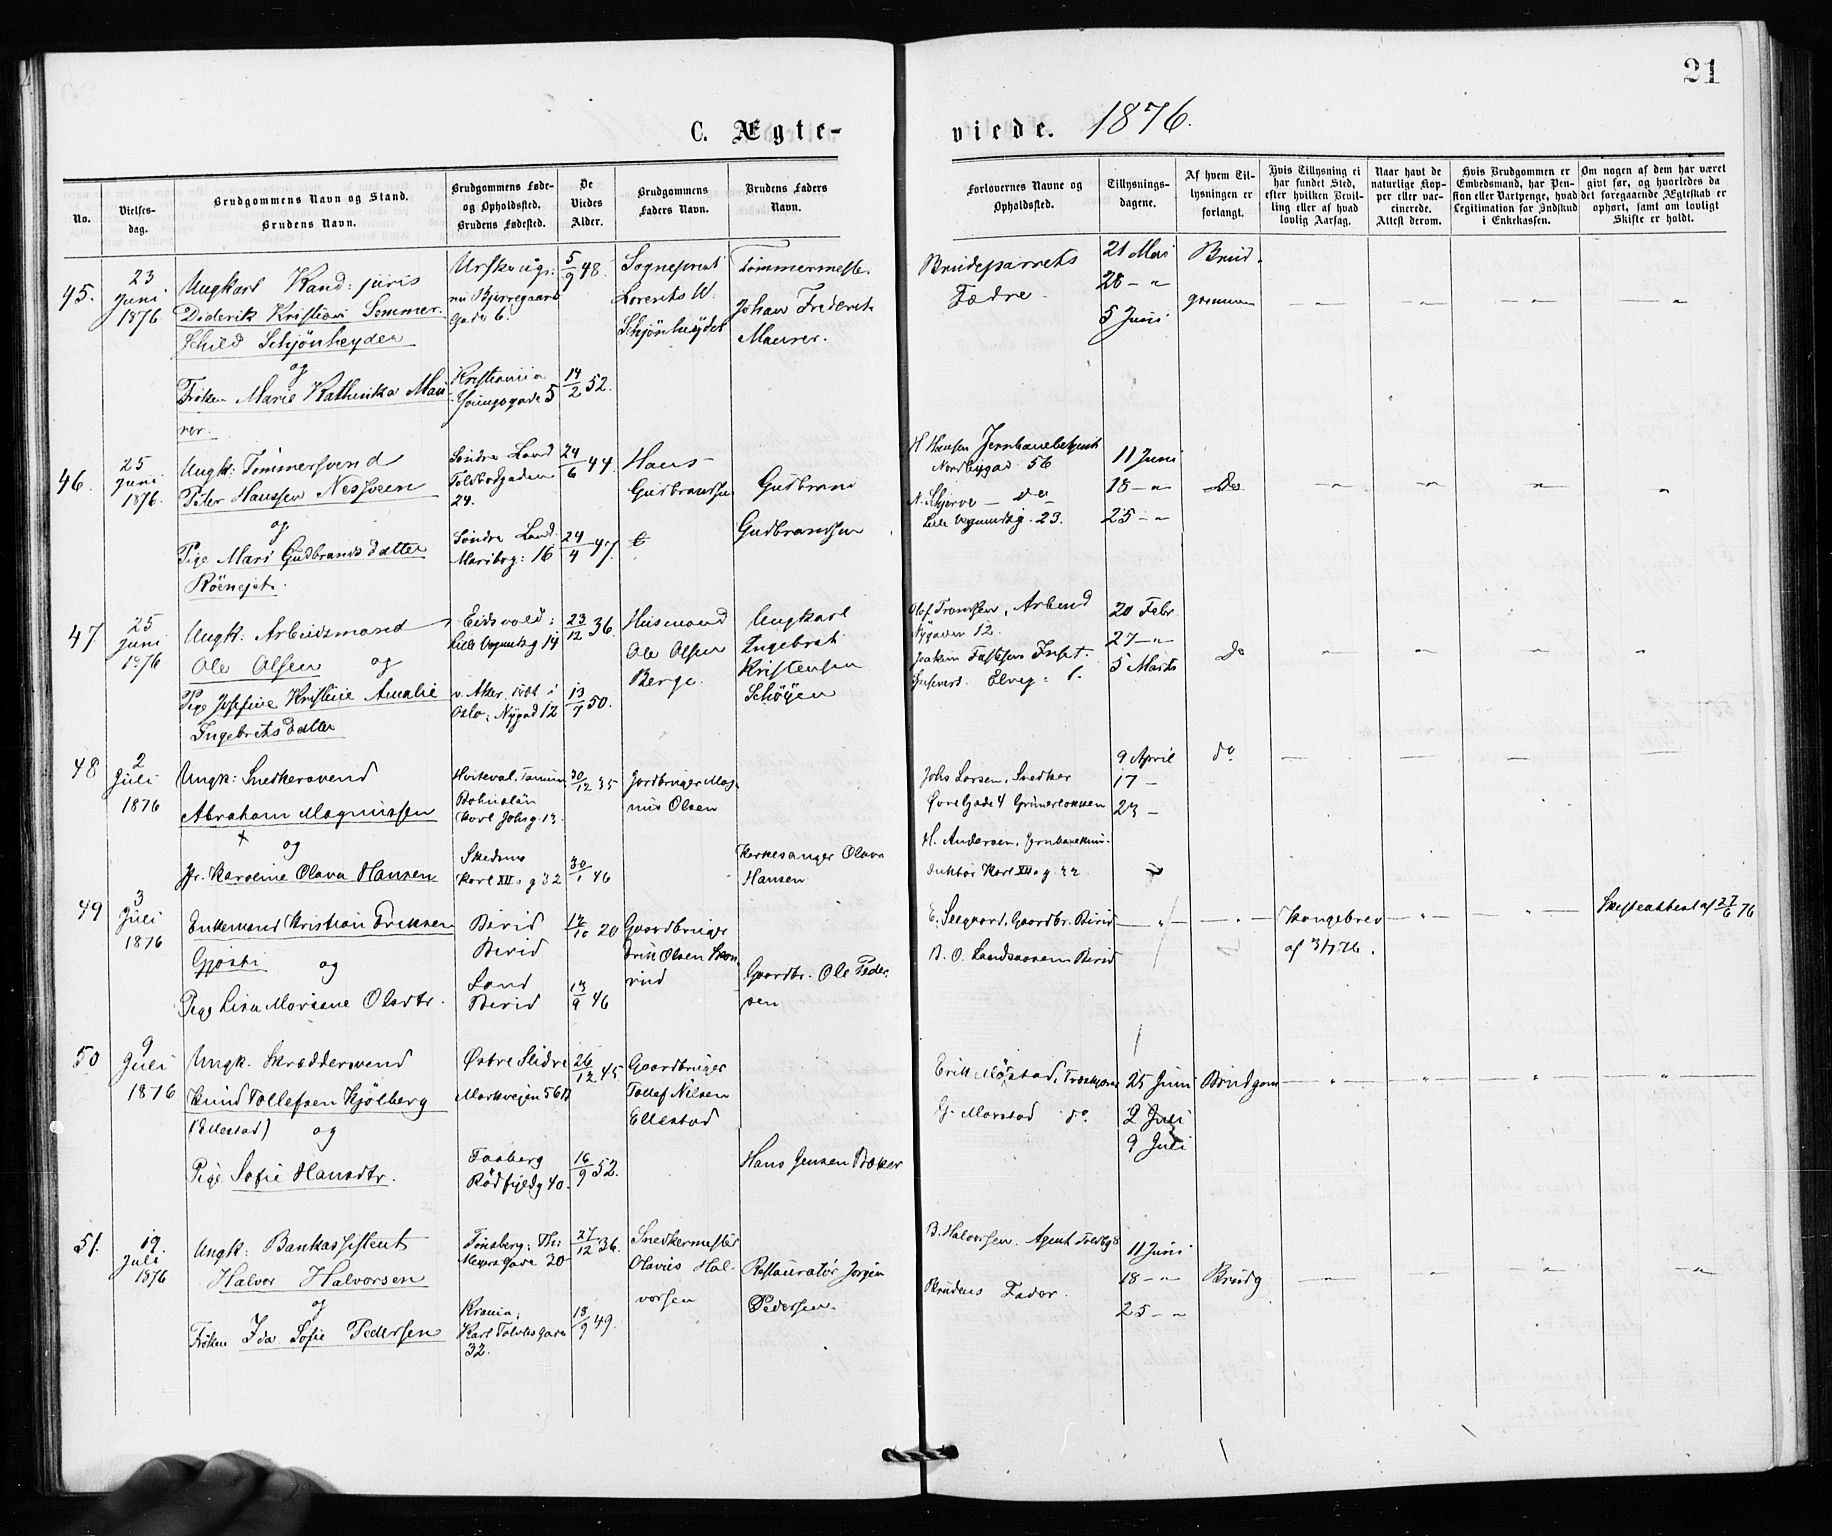 21
C. Ægte-
viede. 1876.
No.
Vielses-
dag.
Brudgommens Navn og Stand.
Brudens Navn.
Brudgommens Føde-
og Opholdssted.
Brudens Fødested.
De
Viedes
Alder.
Brudgommens
Faders Navn.
Brudens Faders
Navn.
Forlovernes Navne og
Opholdssted.
Tillysnings-
dagene.
Af hvem Til-
lysningen er
forlangt.
Hvis Tillysning ei
har fundet Sted,
efter hvilken Bevil-
ling eller af hvad
lovlig Aarsag.
Naar havt de
naturlige Kop-
per eller vac-
cinerede.
Attest derom.
Hvis Brudgommen er
Embedsmand, har Pen-
sion eller Vartpenge, hvad
Legitimation for Indskud
i Enkekassen.
Om nogen af dem har været
givt før, og hvorledes da
det foregaaende Ægteskab er
ophørt, samt om lovligt
Skifte er holdt.
45.
23
Juni
1876.
Ungkarl Kand: juris
Diderik Kristian Sommer-
schild Schjönheyder
og
Frøken Marie Kathrika Mau-
rer.
Urskoug:
nu Bjerregaards
Gade 6.
Kristiania
Youngsgade 5
5/9 48.
14/2 52.
Sogneprest
Lorents W.
Schjönheyder
Tømmermeste.
Johan Frederik
Maurer.
Brudeparrets
Fædre.
21 Mai
28 - "
5 Juni
Brud-
gommen
46.
25
Juni
1876.
Ungk: Tömmersvend
Peter Hanssen Nessveen
og
Pige Mari Gudbrandsdatter
Röenejet.
Söndre Land
Toldbodgaden
24.
Söndre Land
Maribog: 16
24/6 44.
24/4 47.
Hans
Gudbrandsen
Gudbrand
Gudbrandsen
H Hansen Jernbanebetjent
Nordbygad. 56
N. Skjerve - do
Lille Vognmdsg. 23.
11 Juni
18 - "
25 - "
Do
47
25
Juni
1876
Ungk: Arbeidsmand
Ole Olsen og
Pige Josefine Kristine Amalie
Ingebretsdatter
Eidsvold:
Lille Vognmdsg 14
v. Aker. födt i
Oslo: Nygad 12
23/12 36.
13/7 50.
Husmand
Ole Olsen
Berge.
Ungkarl
Ingebret
Kristensen
Schöyen
Olof Frandsen, Arbend
Nygaden 12.
Elveg: 1.
20 Febr
27 - "
5 Marts
Do
48
2
Juli
1876
Ungk: Snedkersvend
Abraham Magnussen
og
Jfr. Karoline Olava Hansen
Hviteval, Tanum
Bohuslän
Karl Johsg. 13.
Skedsmo
Karl XII s g 32
30/12 35
30/1 46
Jordbruger Mag-
nus Olsen
Kirkesanger Olava
Hansen
Johs Larsen, Snedker
Øvre Gade 4 Grünerløkken
H. Andersen, Jernbanekon-
duktør Karl XII s g. 22
9 April
17 -
23 -
do
49
3
Juli
1876
Enkemand Kristian Eriksen
Gjösti og
Pige Lisa Mariane Olsdtr.
Birid
Birid
Land
Birid
12/10 20
13/9 46
Gaardbruger
Erik Olsen Skon-
rud
Gaardbr. Ole Peder-
sen
E. Seegaard, Gaardbr. Birid
B. O. Landsaasen Birid
Kongebrev
af 3/7 76.
Skifteattest af 27/6 76
50
9
Juli
1876
Ungk. Skræddersvend
Knud Tollefsen Kjölberg
(Ellestad) og
Pige Sofie Hansdtr.
Østre Slidre
Markveien 56 B
Faaberg
Rödfyldg 40.
26/12 45
16/9 52.
Gaardbruger
Tollef Nilsen
Ellestad
Hans Jensen Bakar
Erik Möstad, Træskjærer
G. Marstad do.
25 Juni
2 Juli
9 Juli
Brudgom
51.
19.
Juli
1876
Ungk: Bankassistent
Halvor Halvorsen
og
Frøken Ida Sofie Pedersen
Tönsberg: Th:
Meyersgade 30
Krania:
Karl Tolvtes gade
32.
27/12 36.
18/9 49.
Snedkermester
Olavus Hal-
vorsen
Restauratör Jörgen
Pedersen.
B. Halvorsen. Agent Toldbg 8
Brudens Fader.
11 Juni
18 - "
25 - "
Brudg